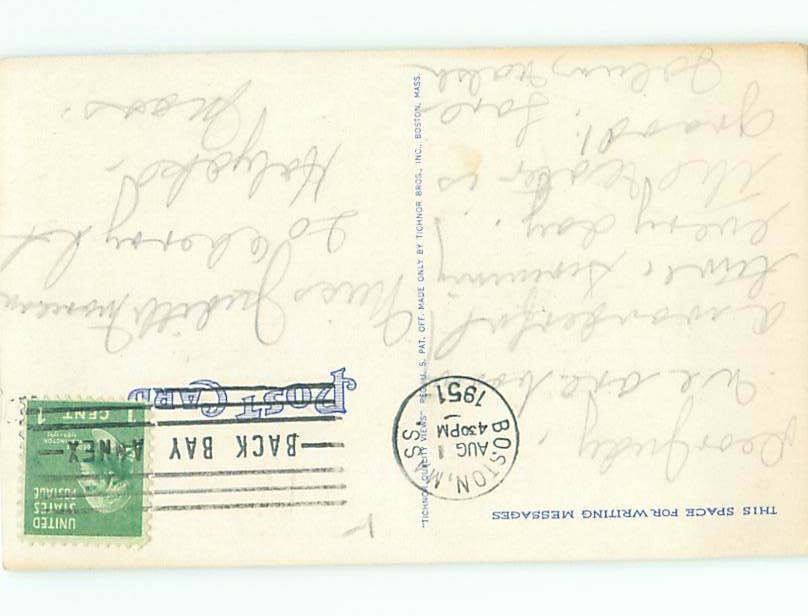 THIS SPACE FOR WRITING MESSAGES
Dear Judy,
We are having
a wonderful
time swimming
every day.
The water is
grand. Love
POST CARD
UNITED
STATES
POSTAGE
1 CENT 1
BACK BAY
ANNEX
BOSTON, MASS.
AUG 1
430PM
1951
Miss Judith
20 Cherry St
Holyoke.
Mass.
"TICHNOR QUALITY VIEWS" REG. U. S. PAT. OFF. MADE ONLY BY TICHNOR BROS., INC., BOSTON, MASS.